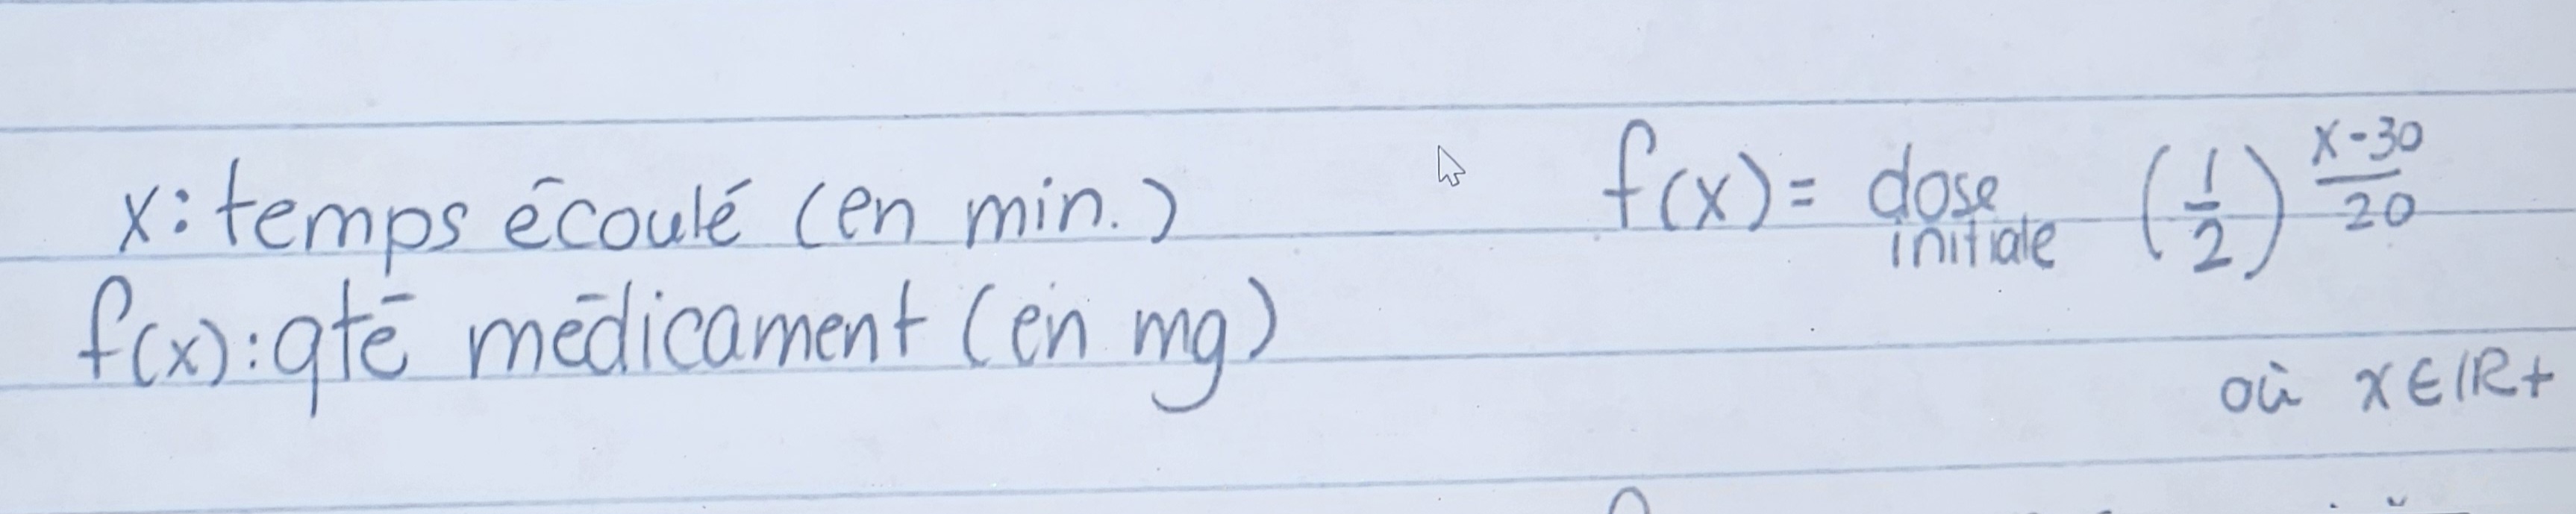 x: temps écoulé (en min.)
f(x): qté médicament (en mg)
f(x) = dose initiale (1/2)^((x-30)/20)
où x ∈ IR+